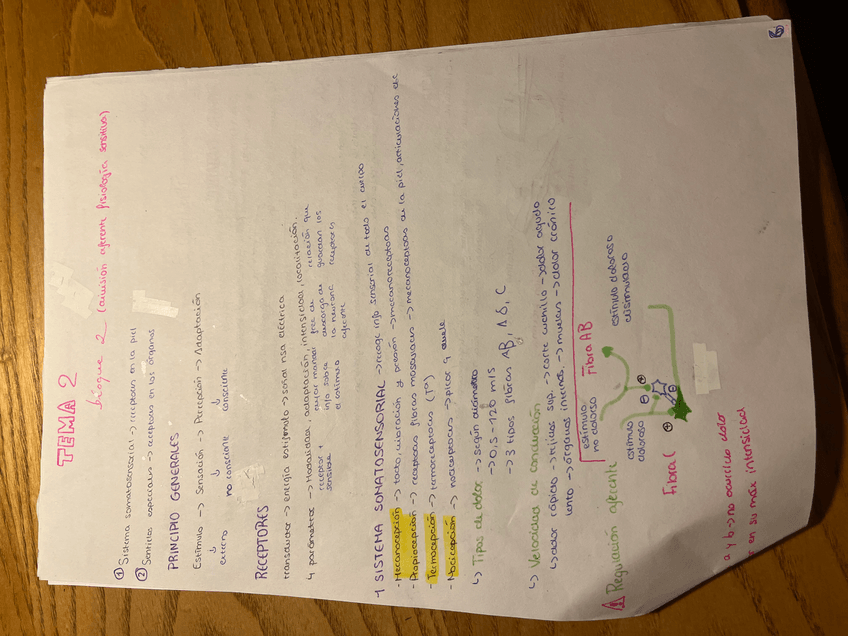 TEMA 2
bloque 2 (división aferente fisiología sensitiva)
① Sistema somatosensorial -> receptores en la piel
② Sentidos especiales -> receptores en los órganos
PRINCIPIO GENERALES
Estímulo -> Sensación -> Percepción -> Adaptación
↓ ↓ ↓
externo no consciente consciente
RECEPTORES
transductor -> energía estímulo -> señal nsa eléctrica
4 parámetros -> Modalidad, adaptación, intensidad, localización.
receptor + sensible
mayor manda info sobre el estímulo
frec de descarga de la neurona aferente
relación que guardan los receptores
1 SISTEMA SOMATOSENSORIAL -> recoge info sensorial de todo el cuerpo
- Mecanocepción -> tacto, vibración y presión -> mecanoreceptores
- Propiocepción -> receptores fibras musculares -> mecanoceptores de la piel, articulaciones etc
- Termocepción -> termoreceptores (Tª)
- Nocicepción -> nociceptores -> picor y duele
↳ Tipos de dolor -> según diámetro
-> 0,5-120 m/s
-> 3 tipos fibras AB, AS, C
↳ Velocidad de conducción
↳ dolor rápido -> tejidos sup. -> corte cuchillo -> dolor agudo
lento -> órganos internos, -> muelas -> dolor crónico
1 Regulación aferente
estímulo no doloroso
Fibra AB
estímulo doloroso
estímulo doloroso disimulado
Fibra C
a y b -> no ocurrido dolor
r en su max intensidad
6